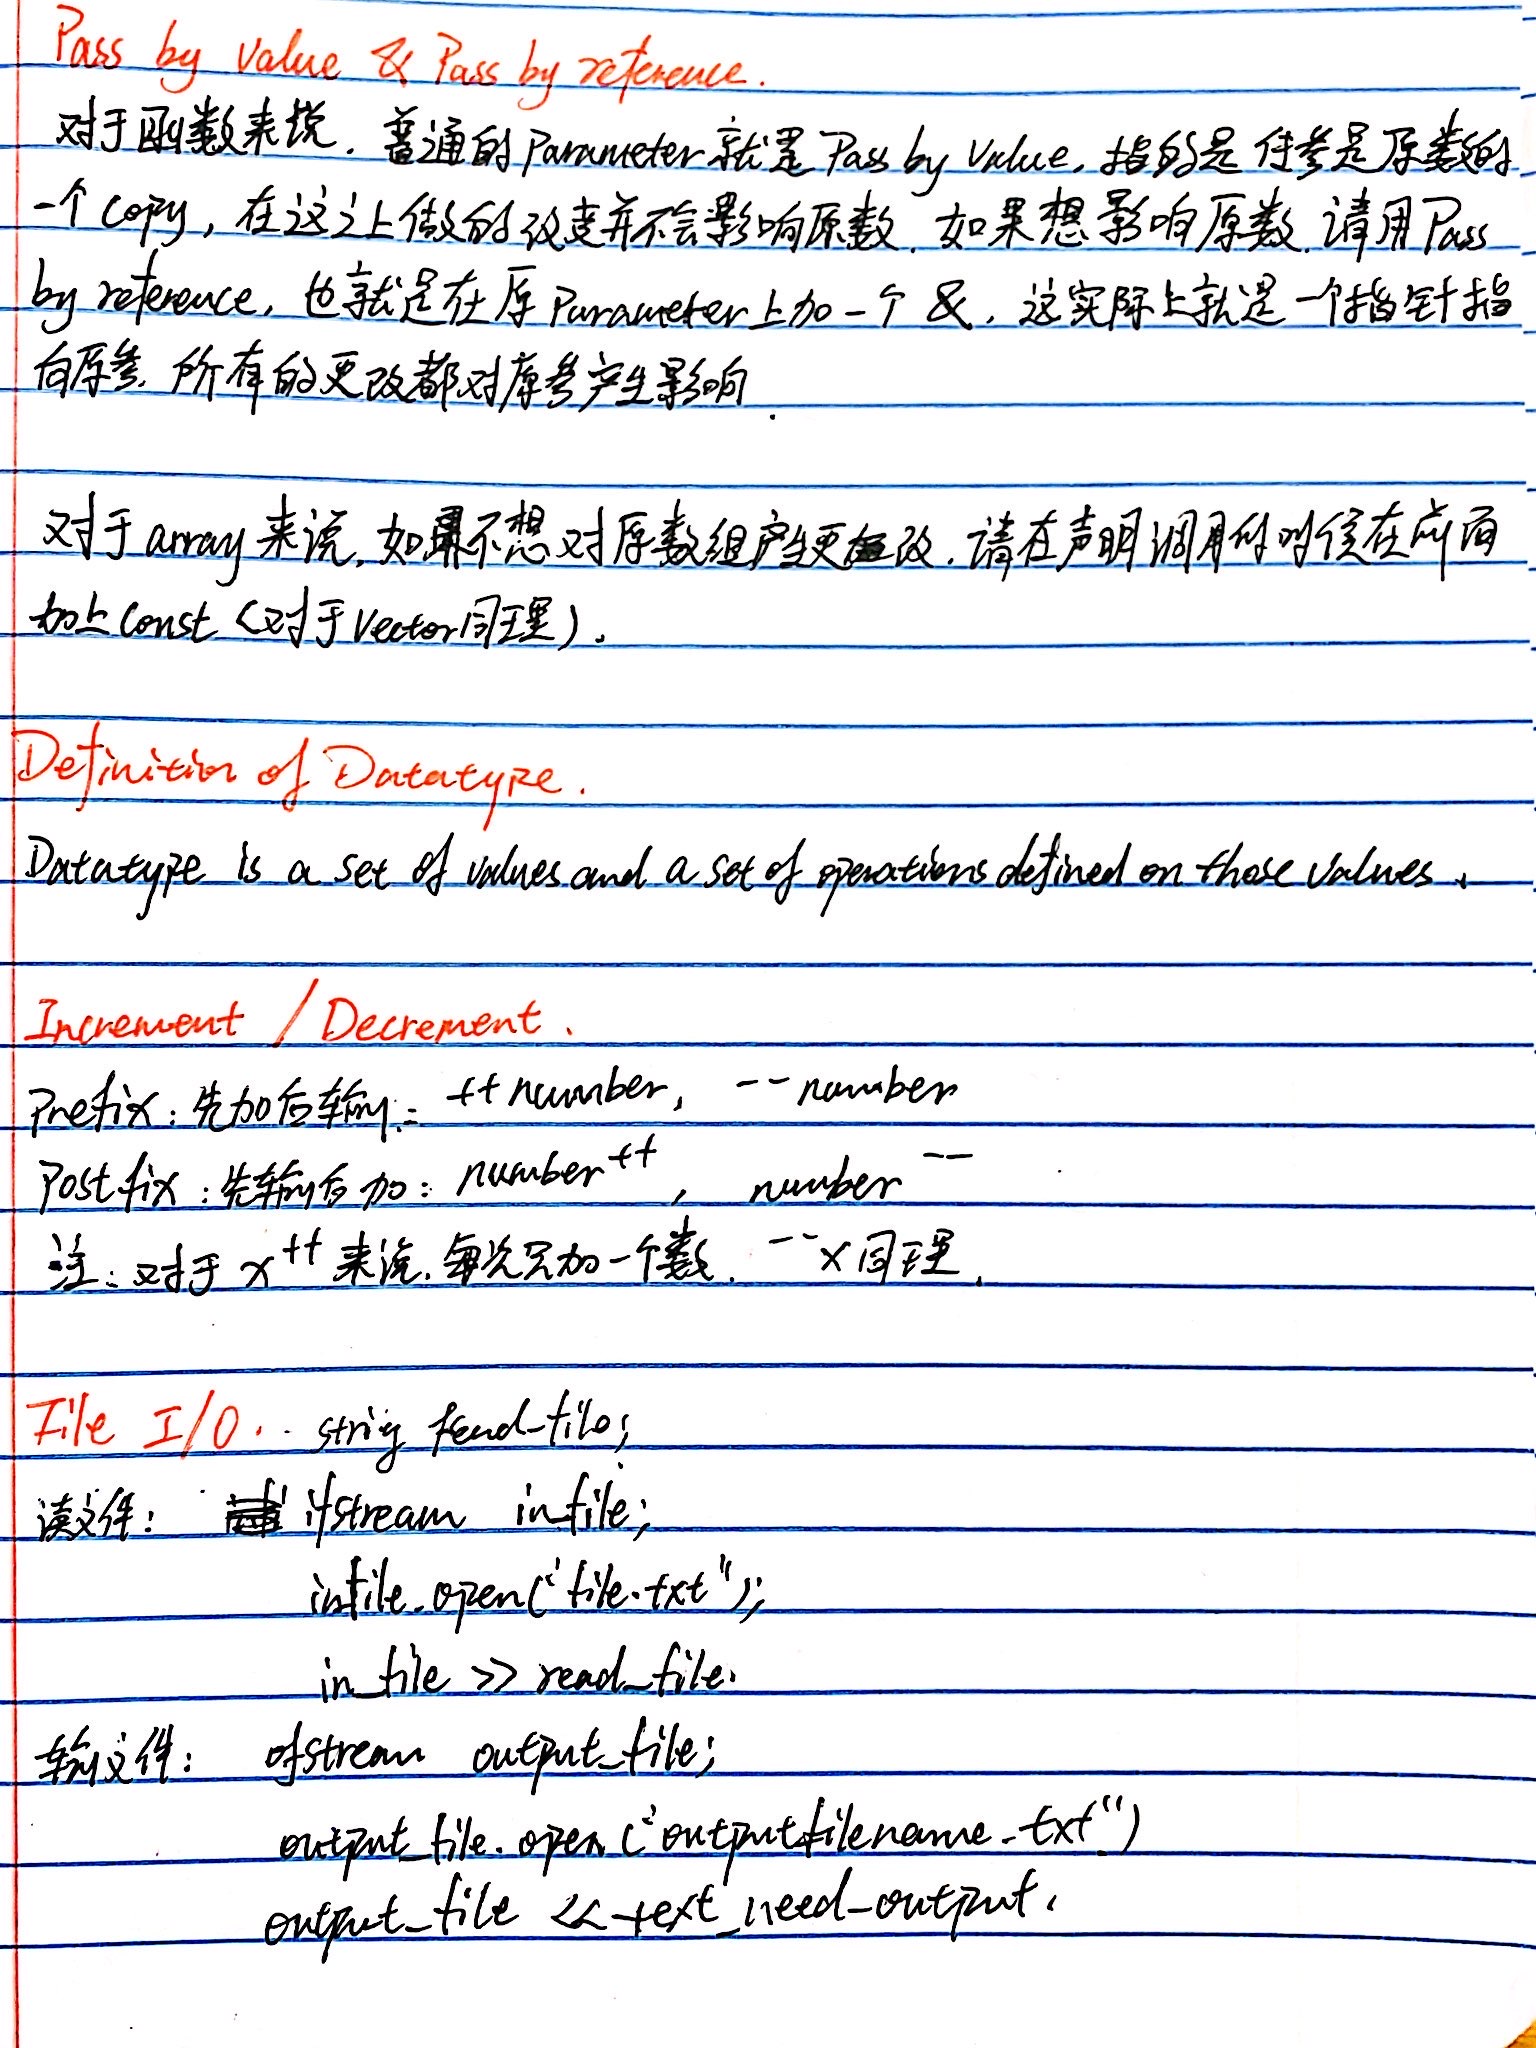 Pass by value & Pass by reference.
对于函数来说. 普通的Parameter就是Pass by Value, 指的是传参是原数的
一个copy, 在这之上做的改变并不会影响原数. 如果想影响原数. 请用Pass
by reference, 也就是在原Parameter上加一个 &, 这实际上就是一个指针指
向原参. 所有的更改都对原参产生影响.
对于array来说, 如果不想对原数组产生更改. 请在声明调用的时候在前面
加上const (对于Vector同理).
Definition of Datatype.
Datatype is a set of values and a set of operations defined on those values.
Increment / Decrement.
Prefix: 先加后输: ++number, --number
Postfix: 先输后加: number++, number--
注: 对于x++来说. 每次只加一个数. --x同理.
File I/O. string read_file;
读文件: ifstream in_file;
infile.open("file.txt");
in_file >> read_file.
输文件: ofstream output_file;
output_file.open("outputfilename.txt")
output_file << text_need_output.